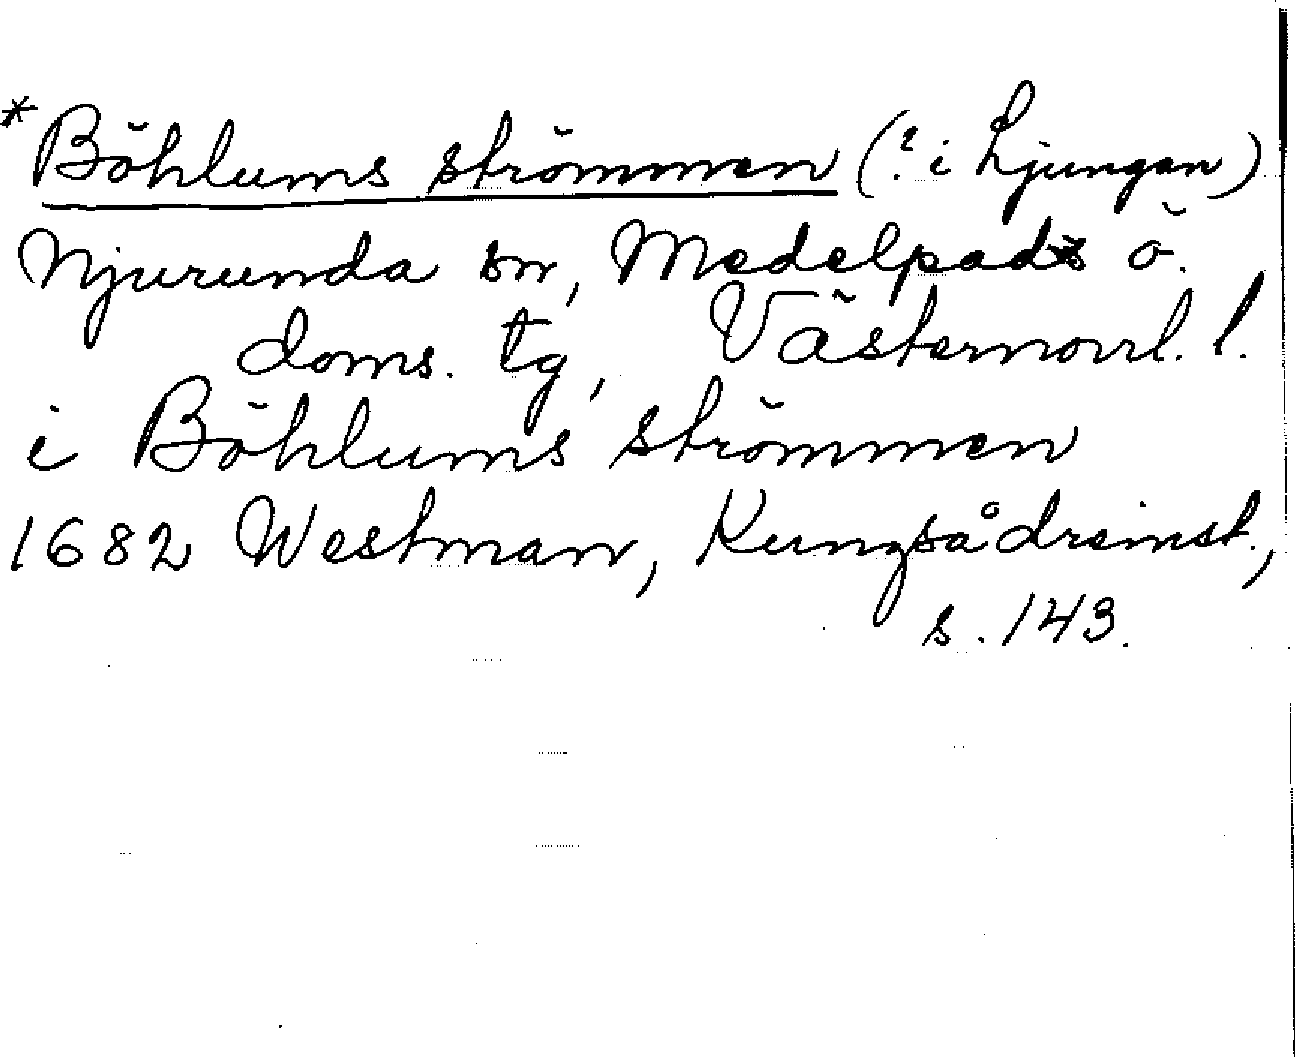 *Böhlums strömmen (? i Ljungan)
Njurunda sn, Medelpads ö.
doms. tg, Västernorrl. l.
i Böhlums strömmen
1682 Westman, Kungsådreinst.,
s. 143.